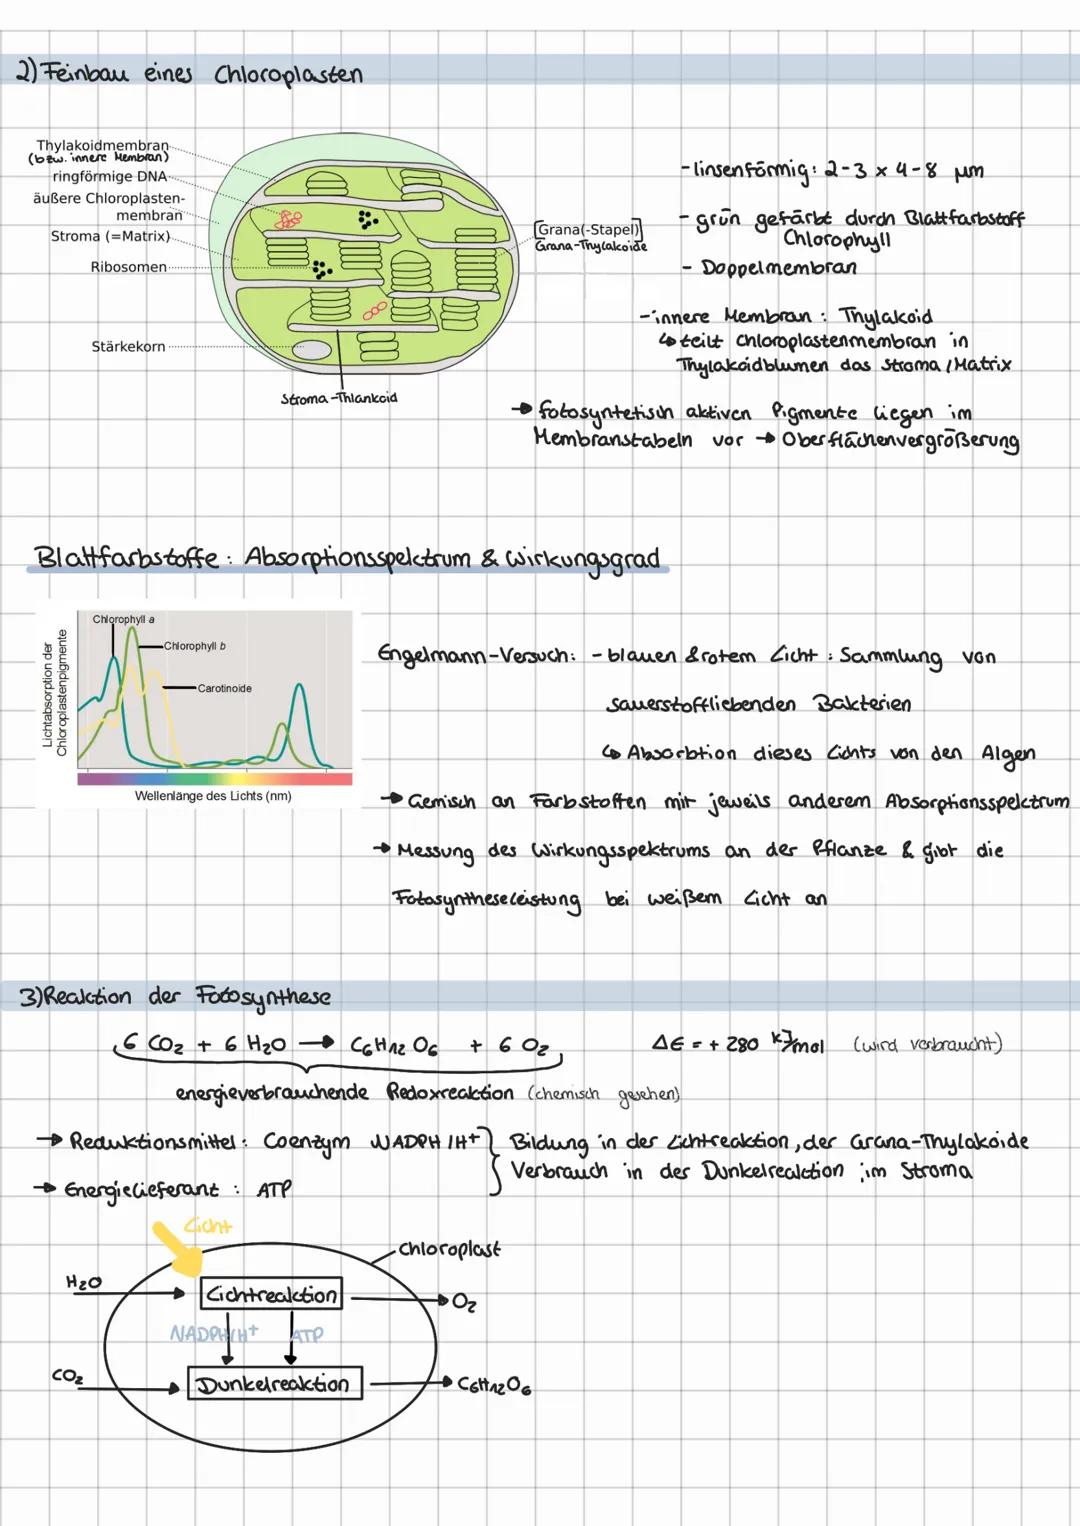 2) Feinbau eines Chloroplasten
Thylakoidmembran
(bzw. innere Membran)
ringförmige DNA
äußere Chloroplasten-
membran
Stroma (=Matrix)
Ribosomen
Stärkekorn
Stroma-Thlankoid
[Grana(-Stapel)]
Grana-Thylakoide
- linsenförmig: 2-3 x 4-8 µm
- grün gefärbt durch Blattfarbstoff
Chlorophyll
- Doppelmembran
- innere Membran: Thylakoid
↳ teilt Chloroplastenmembran in
Thylakoidblumen das Stroma/Matrix
→ fotosyntetisch aktiven Pigmente liegen im
Membranstabeln vor → Oberflächenvergrößerung
Blattfarbstoffe: Absorptionsspektrum & Wirkungsgrad
Lichtabsorption der
Chloroplastenpigmente
Chlorophyll a
Chlorophyll b
Carotinoide
Wellenlänge des Lichts (nm)
Engelmann-Versuch: - blauen & rotem Licht: Sammlung von
sauerstoffliebenden Bakterien
↳ Absorbtion dieses Lichts von den Algen
→ Gemisch an Farbstoffen mit jeweils anderem Absorptionsspektrum
→ Messung des Wirkungsspektrums an der Pflanze & gibt die
Fotosyntheseleistung bei weißem Licht an
3) Reaktion der Fotosynthese
6 CO₂ + 6 H₂O → C₆H₁₂O₆ + 6 O₂ ΔE = + 280 kJ/mol (wird verbraucht)
energieverbrauchende Redoxreaktion (chemisch gesehen)
→ Reduktionsmittel: Coenzym NADPH/H⁺
→ Energielieferant: ATP
Bildung in der Lichtreaktion, der Grana-Thylakoide
Verbrauch in der Dunkelreaktion im Stroma
Licht
Chloroplast
H₂O
Lichtreaktion
O₂
NADPH/H⁺ ATP
CO₂
Dunkelreaktion
C₆H₁₂O₆